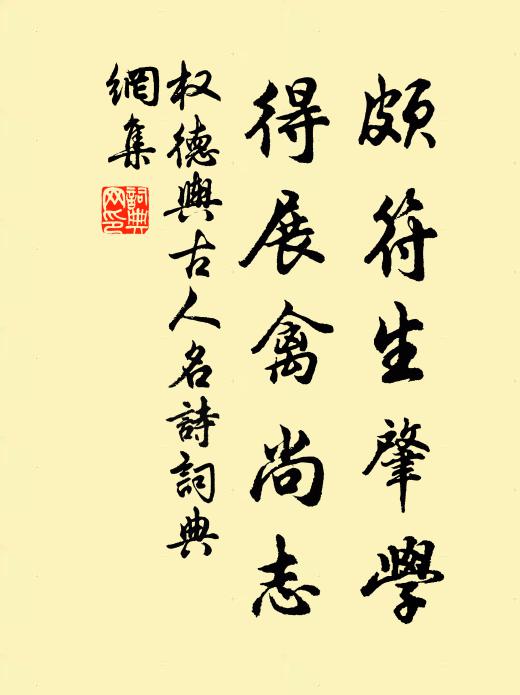 頗符生肇學
得展禽尚志
权德輿古人名詩詞典
網集
詞典网印